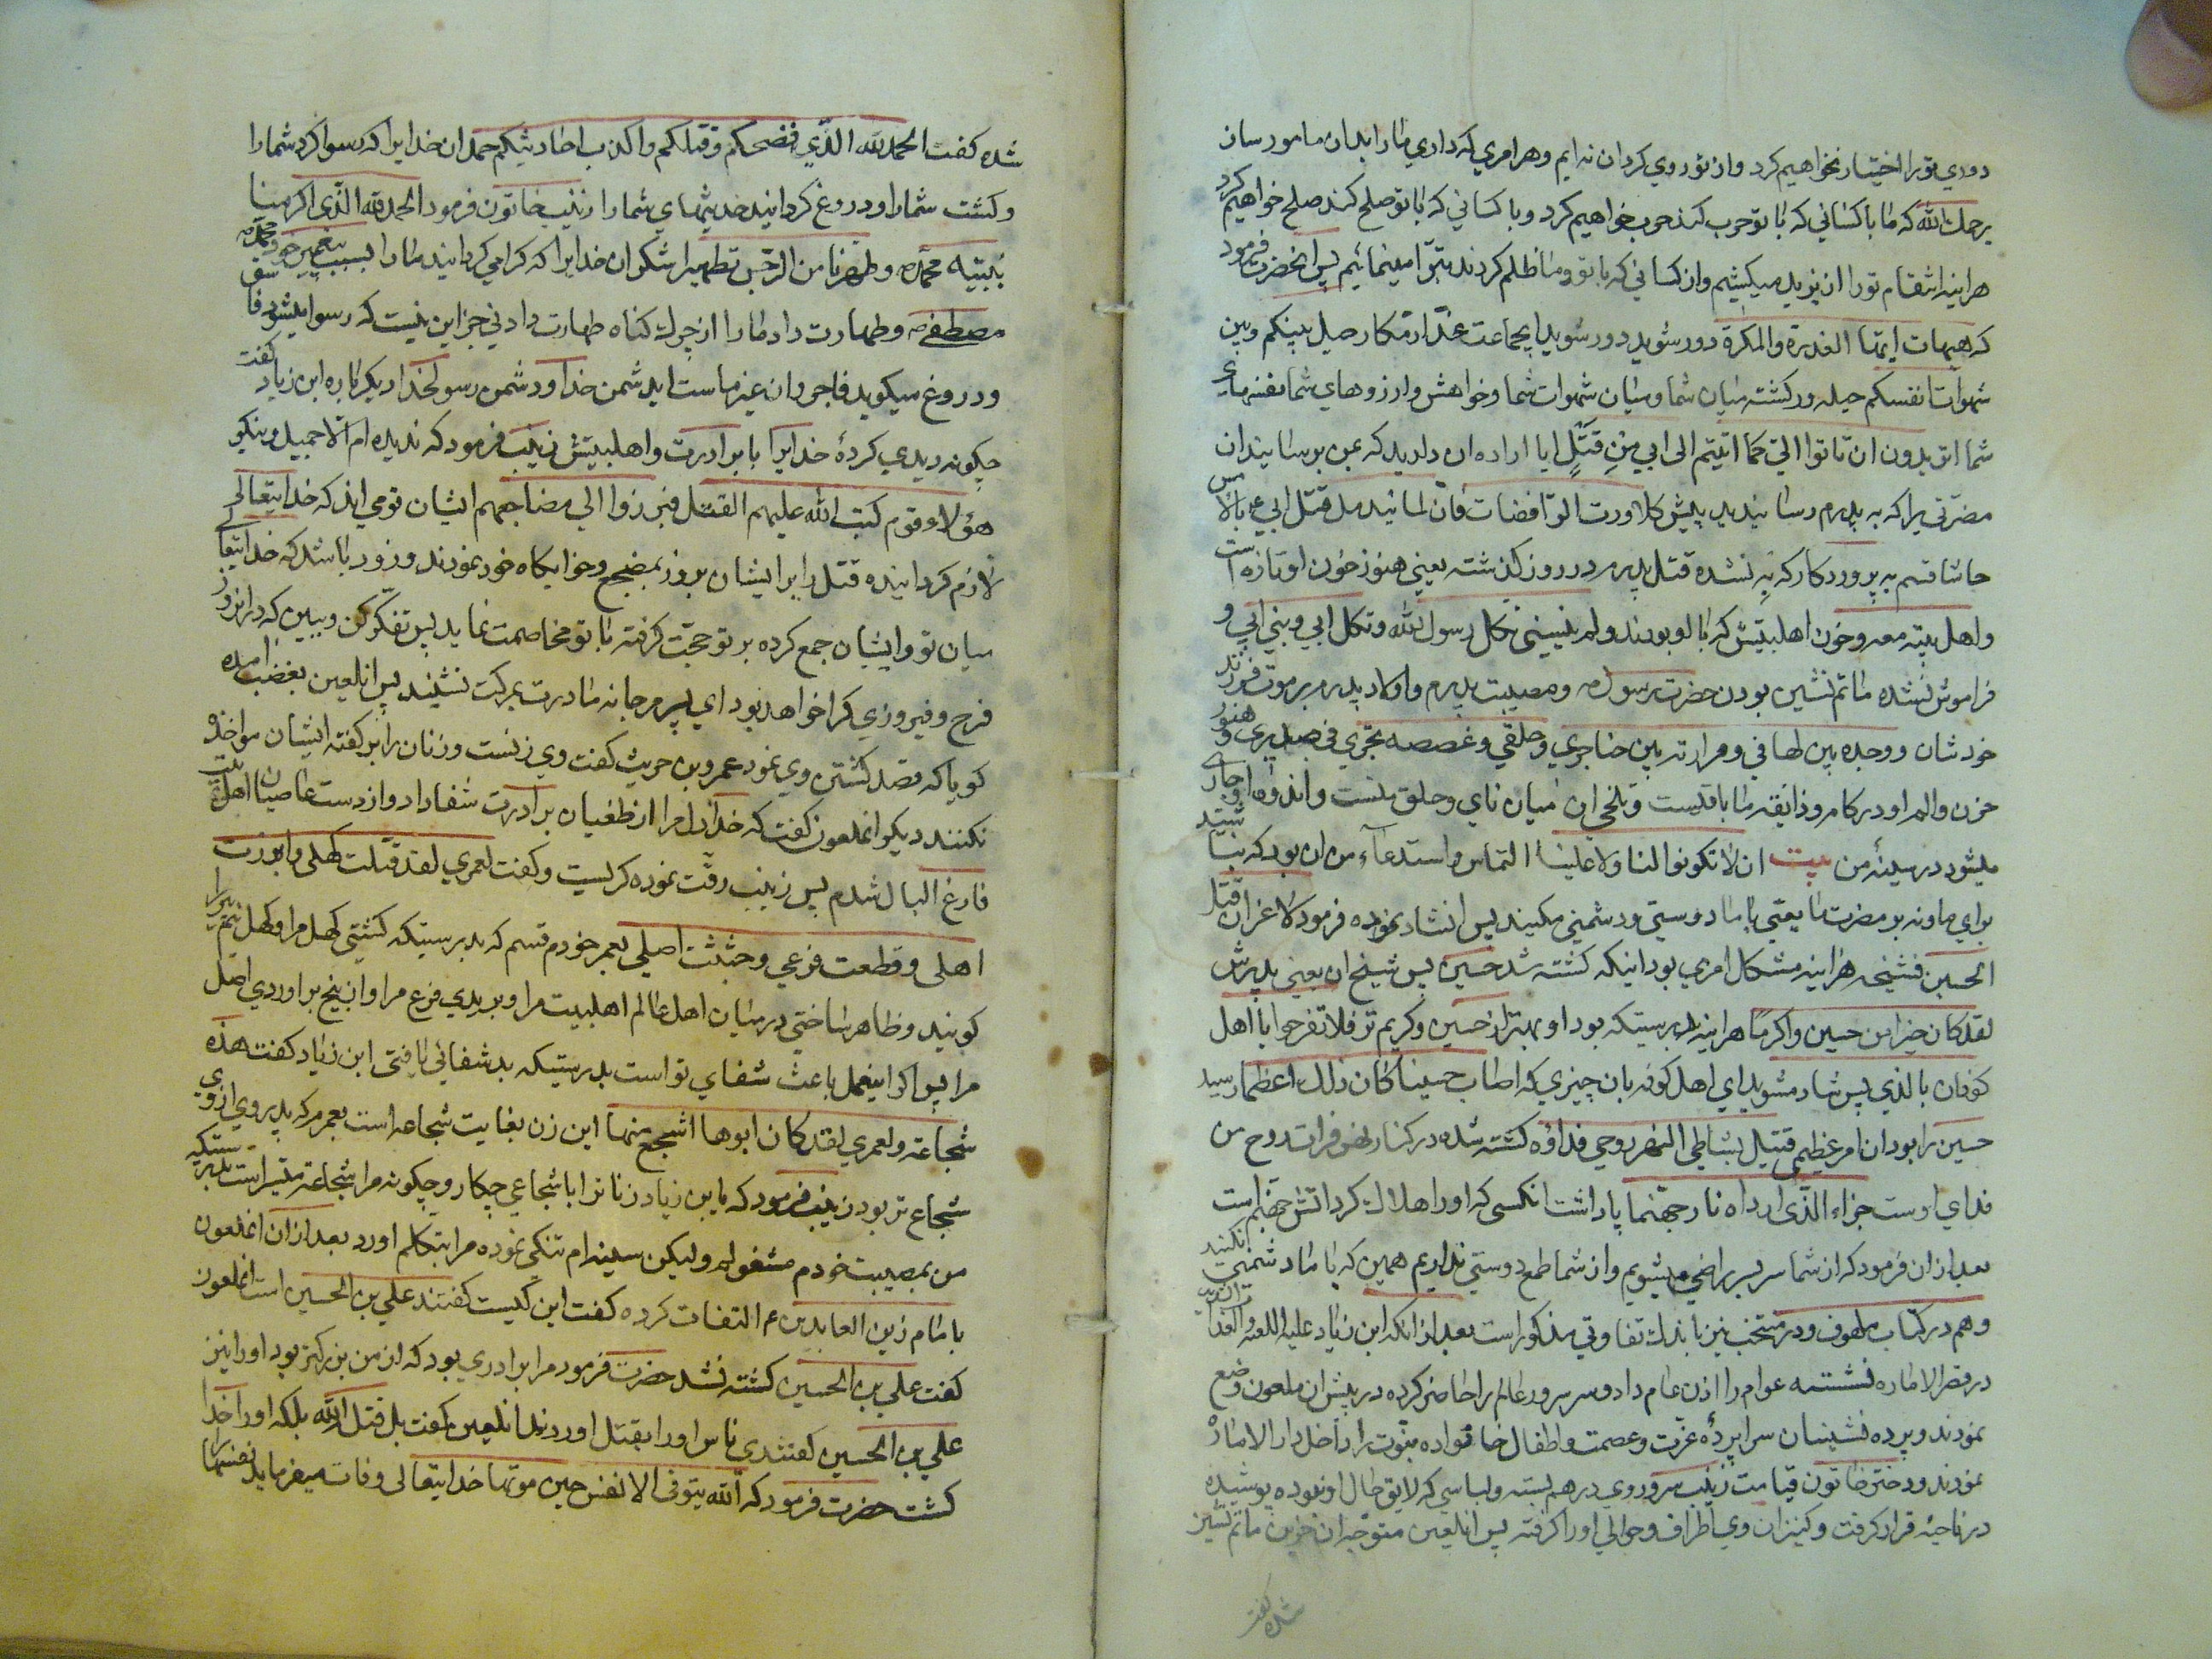 دوری تو را اختیار نخواهیم کرد و از تو روی کردان نه ایم و هر امری که داری ما را بدان مامور ساز
یرحمک الله که ما با کسانی که با تو حرب کنند حرب خواهیم کرد و با کسانی که با تو صلح کنند صلح خواهیم کرد
هراینه انتقام تو را از یزید میکشیم و از کسانی که با تو و ما ظلم کردند تبرّا مینمائیم پس انحضرت فرمود
که هیهات ایتها الغدرة والمکرة دور شوید دور شوید ایجماعت غدّار مکار حیل بینکم وبین
شهوات انفسکم حیله ور کشته میان شما و میان شهوات شما و خواهش و ارزوهای شما نفسهای
شما اتریدون ان تاتوا الیّ کما اتیتم الی ابی مِن قَبْل ایا اراده ان دارید که بمن برسانید ان
مضرتی را که به پدرم رسانیدید پیش کلا ورب الراقضات فان لما یندمل قتل ابی ع بالامس
حاشا قسم به پروردکار که به نشده قتل پدرم در روز کذشته یعنی هنوز خون او تازه است
واهل بیته معه وخون اهلبیتش که با او بودند ولم ینسینی ثکل رسول الله وثکل ابی وبنی ابی و
فراموش نشده ماتم نشین بودن حضرت رسول ص ومصیبت پدرم واولاد پدرم بر موت فرزند
خودشان ووجده بین لهاتی ومرارته بین حناجری وحلقی وغصصه تجری فی صدری وهنوز
حزن والم او در کام وذایقه ما باقیست وتلخی ان میان نای وحلق منست واندوه او جاری
میشود در سینهٔ من بیت ان لا تکونوا لنا ولا علینا التماس واستدعاء من ان بود که نباشید
برای ما ونه بر مضرت ما یعنی با ما دوستی ودشمنی مکنید پس انشاد نموده فرمود لا غزان قتل
الحسین فشیخه هراینه مشکل امری بود اینکه کشته شد حسین پس شیخ ان یعنی پدرش
لقد کان خیرا من حسین واکرما هراینه بدرستیکه بود او بهتر از حسین وکریم تر فلا تفرحوا یا اهل
کوفان بالذی پس شاد مشوید ای اهل کوفه بان چیزی که اصاب حسینا کان ذلک اعظما رسید
حسین را بود ان امر عظیم قتیل بشاطی النهر روحی فداؤه کشته شده در کنار نهر فرات روح من
فدای اوست جزاء الذی ارداه نار جهنما پاداشت انکسی که او را هلاک کرد اتش جهنم است
بعد از ان فرمود که از شما سر بسر راضی میشویم واز شما طمع دوستی نداریم همین که با ما دشمنی نکنید
وهم در کتاب ملهوف ودر منتخب نیز باندک تفاوتی مذکور است بعد از انکه ابن زیاد علیه اللعنه والعذاب
در قصر الاماره نشسته عوام را اذن عام داد وسر سرور عالم را حاضر کرده در پیش ان ملعون وضع
نمودند وپرده نشینان سراپردهٔ عزت وعصمت واطفال خانواده نبوت را داخل دار الاماره
نمودند ودختر خاتون قیامت زینب سر وروی در هم بسته ولباسی که لایق حال او نبوده پوشیده
در ناحیه قرار کرفت وکنیزان وی اطراف وحوالی او را کرفته پس انلعین متوجه ان حزین ماتم نشین
شده کفت
شده کفت الحمد لله الذی فضحکم وقتلکم واکذب احادیثکم حمد ان خدایرا که رسوا کرد شما را
وکشت شما را ودروغ کردانید حدیثهای شما را زینب خاتون فرمود الحمد لله الذی اکرمنا
بنبیّه محمد ص وطهرنا من الرجس تطهیرا شکر ان خدایرا که کرامی کردانید ما را بسبب پیغمبر خود محمد
مصطفی ص وطهارت داد ما را از چرک کناه طهارت دادنی جز این نیست که رسوا میشود فاسق
ودروغ میکوید فاجر وان غیر ماست ای دشمن خدا ودشمن رسولخدا دیکرباره ابن زیاد کفت
چکونه دیدی کردهٔ خدایرا با برادرت واهلبیتش زینب فرمود که ندیده ام الّا جمیل ونیکو
هؤلاء قوم کتب الله علیهم القتل فبرزوا الی مضاجعهم ایشان قومی اند که خدایتعالی
لازم کردانیده قتل را بر ایشان بروز بمضجع وخوابکاه خود نمودند وزود باشد که خدایتعالی
میان تو وایشان جمع کرده بر تو حجّت کرفته با تو مخاصمت نماید پس تفکّر کن وببین که در انروز
فرح وفیروزی کرا خواهد بود ای پسر مرجانه مادرت بمرکت نشیند پس انلعین بغضب امده
کویا که قصد کشتن وی نمود عمرو بن حریث کفت وی زنست وزنان را بر کفته ایشان مواخذه
نکنند دیکر انملعون کفت که خدا دل مرا از طغیان برادرت شفا داد واز دست عاصیان اهل بیتت
فارغ البال شدم پس زینب رقّت نموده کریست وکفت لعمری لقد قتلت کهلی وابرزت
اهلی وقطعت فرعی وجثثت اصلی بعمر خودم قسم که بدرستیکه کشتی کهل مرا وکهل پیر را
کویند وظاهر ساختی در میان اهل عالم اهلبیت مرا وبریدی فرع مرا واز بیخ بر اوردی اصل
مرا پس اکر اینعمل باعث شفای تو است بدرستیکه بد شفائی یافتی ابن زیاد کفت هذه
شجاعة ولعمری لقد کان ابوها اشجع منها این زن بغایت شجاعه است بعمرم که پدر وی از وی
شجاع تر بود زینب فرمود که یابن زیاد زنان را با شجاعی چکار وچکونه مرا شجاعة میسّر است بدرستیکه
من بمصیبت خودم مشغولم ولیکن سینه ام تنکی نموده مرا بتکلم اورد بعد از ان انملعون
با امام زین العابدین ع التفات کرده کفت این کیست کفتند علی بن الحسین است انملعون
کفت علی بن الحسین کشته نشد حضرت فرمود مرا برادری بود که از من بزرکتر بود او را نیز
علی بن الحسین کفتندی ناس او را بقتل اوردند انلعین کفت بل قتل الله بلکه او را خدا
کشت حضرت فرمود که الله یتوفی الانفس حین موتها خدایتعالی وفات میفرماید نفسها را